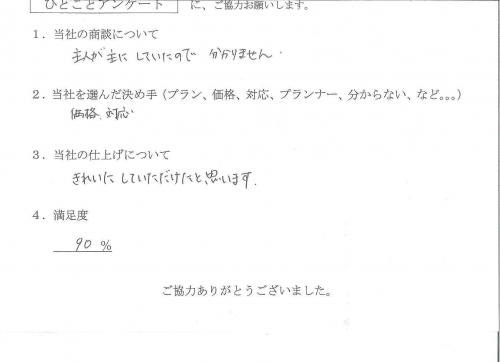 ひとことアンケート に、ご協力お願いします。
1．当社の商談について
主人が主にしていたので 分かりません．
2．当社を選んだ決め手（プラン、価格、対応、プランナー、分からない、など。。。）
価格、対応
3．当社の仕上げについて
きれいにしていただけたと、思います．
4．満足度
90 %
ご協力ありがとうございました。